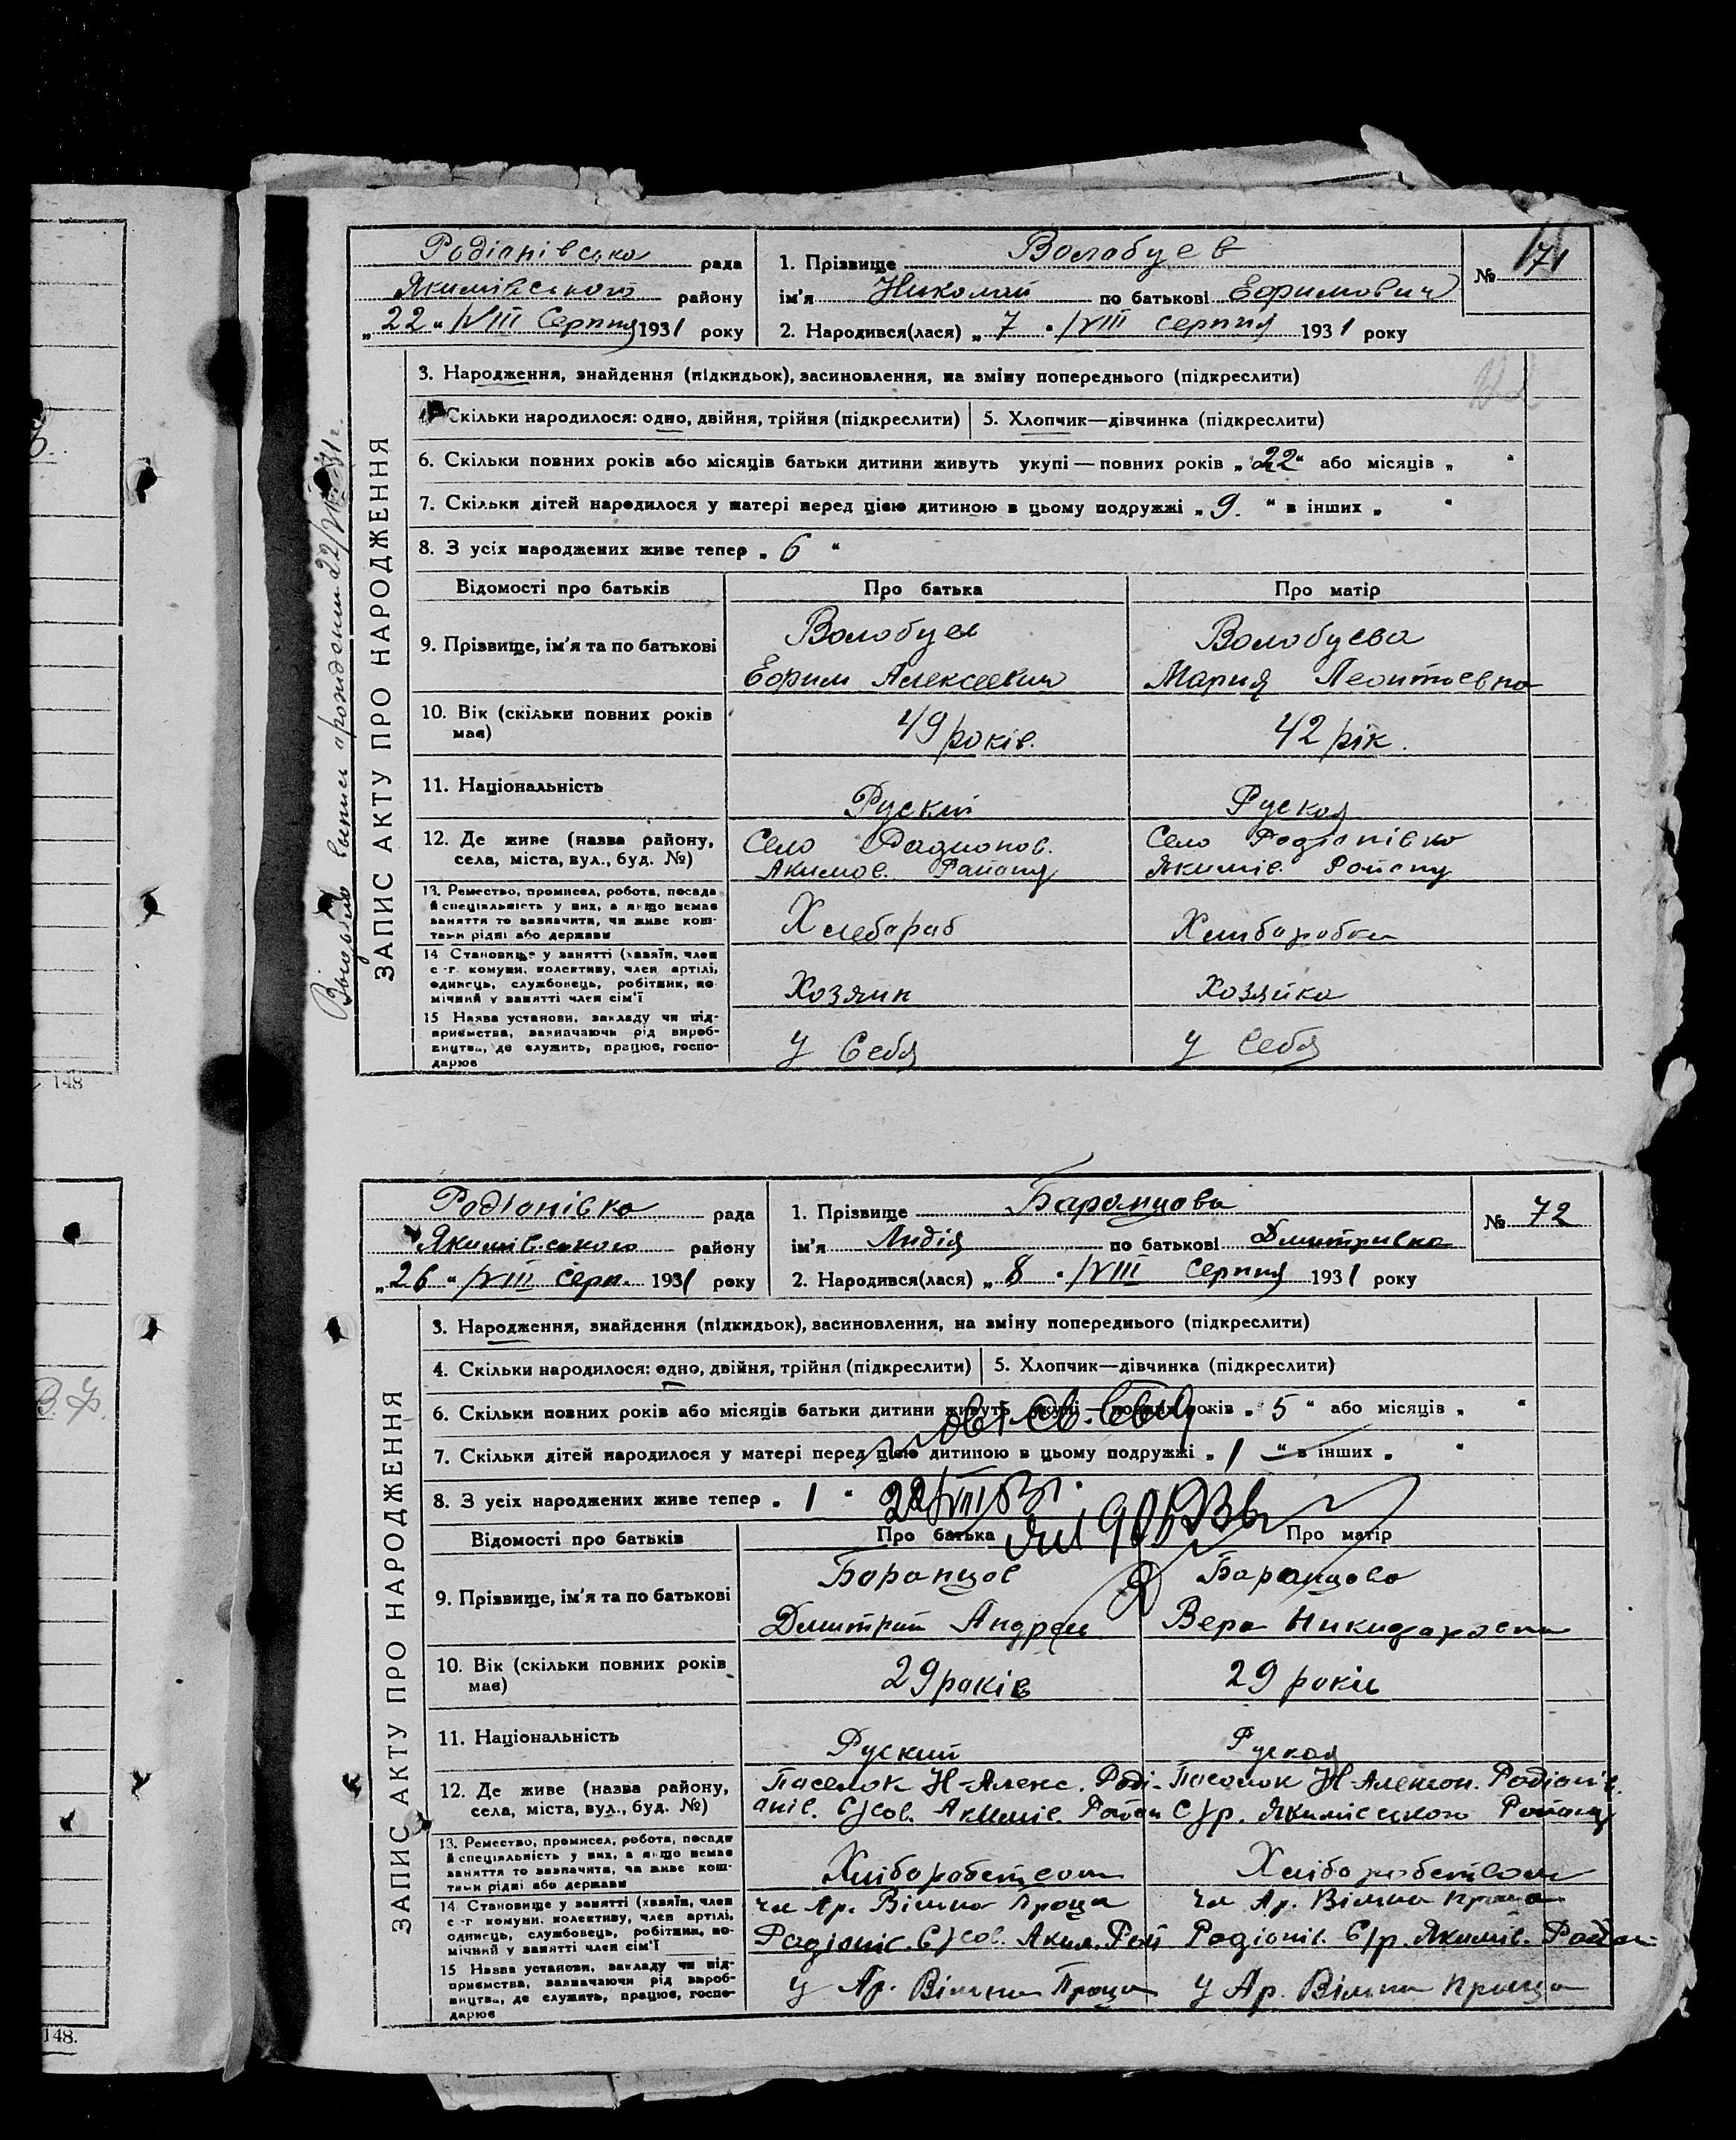 Родіонівська рада
Якимівського району
„22“ /VIII Серпня 1931 року
1. Прізвище Волобуев
ім'я Николай по батькові Ефимович
2. Народився(лася) „7“ /VIII серпня 1931 року
№ 71
ЗАПИС АКТУ ПРО НАРОДЖЕННЯ
3. Народження, знайдення (підкидьок), засиновлення, на зміну попереднього (підкреслити)
4. Скільки народилося: одно, двійня, трійня (підкреслити) 5. Хлопчик—дівчинка (підкреслити)
6. Скільки повних років або місяців батьки дитини живуть укупі — повних років „22“ або місяців „ “
7. Скільки дітей народилося у матері перед цією дитиною в цьому подружжі „9.“ в інших „ “
8. З усіх народжених живе тепер „6“
Відомості про батьків Про батька Про матір
9. Прізвище, ім'я та по батькові
Волобуев Волобуева
Ефим Алексеевич Мария Леонтьевна
10. Вік (скільки повних років має) 49 років. 42 рік.
11. Національність Руский Руская
12. Де живе (назва району, села, міста, вул., буд. №)
Село Радионов. Село Родіонівка
Акимов. Району Якимів. Району
13. Ремество, промисел, робота, посада й спеціяльність у них, а якщо немає заняття то зазначити, чи живе коштами рідні або держави
Хлебораб Хліборобка
14 Становище у занятті (хазяїн, член с.-г. комуни, колективу, член артілі, одинець, службовець, робітник, помічний у занятті член сім'ї
Хозяин Хозяйка
15 Назва установи, закладу чи підприємства, зазначаючи рід виробництва, де служить, працює, господарює
У Себя У Себя
148
Родіонівка рада
Якимівського району
„26“ /VIII серп. 1931 року
1. Прізвище Баранцова
ім'я Лидія по батькові Дмитривна
2. Народився(лася) „8“ /VIII Серпня 1931 року
№ 72
ЗАПИС АКТУ ПРО НАРОДЖЕННЯ
3. Народження, знайдення (підкидьок), засиновлення, на зміну попереднього (підкреслити)
4. Скільки народилося: одно, двійня, трійня (підкреслити) 5. Хлопчик—дівчинка (підкреслити)
6. Скільки повних років або місяців батьки дитини живуть укупі — повних років „5“ або місяців „ “
7. Скільки дітей народилося у матері перед цією дитиною в цьому подружжі „1“ в інших „ “
8. З усіх народжених живе тепер „1“
Відомості про батьків Про батька Про матір
9. Прізвище, ім'я та по батькові
Баранцов Баранцова
Дмитрий Андреи Вера
10. Вік (скільки повних років має) 29 років 29 років
11. Національність Руский Руская
12. Де живе (назва району, села, міста, вул., буд. №)
Паселок Н-Алекс. Роді- Паселок Н-Алексан. Родіонів.
онів. С/сов. Акимів. Район С/р. Якимівського Району
13. Ремество, промисел, робота, посада й спеціяльність у них, а якщо немає заняття то зазначити, чи живе коштами рідні або держави
Хліборобством Хліборобством
14 Становище у занятті (хазяїн, член с.-г. комуни, колективу, член артілі, одинець, службовець, робітник, помічний у занятті член сім'ї
чл Ар. Вільна Проца чл Ар. Вільна Праца
Радіонів. С/сов. Аким. Рай Родіонів. С/р. Якимів. Район
15 Назва установи, закладу чи підприємства, зазначаючи рід виробництва, де служить, працює, господарює
У Ар. Вільна Проца У Ар. Вільна Праца
148.